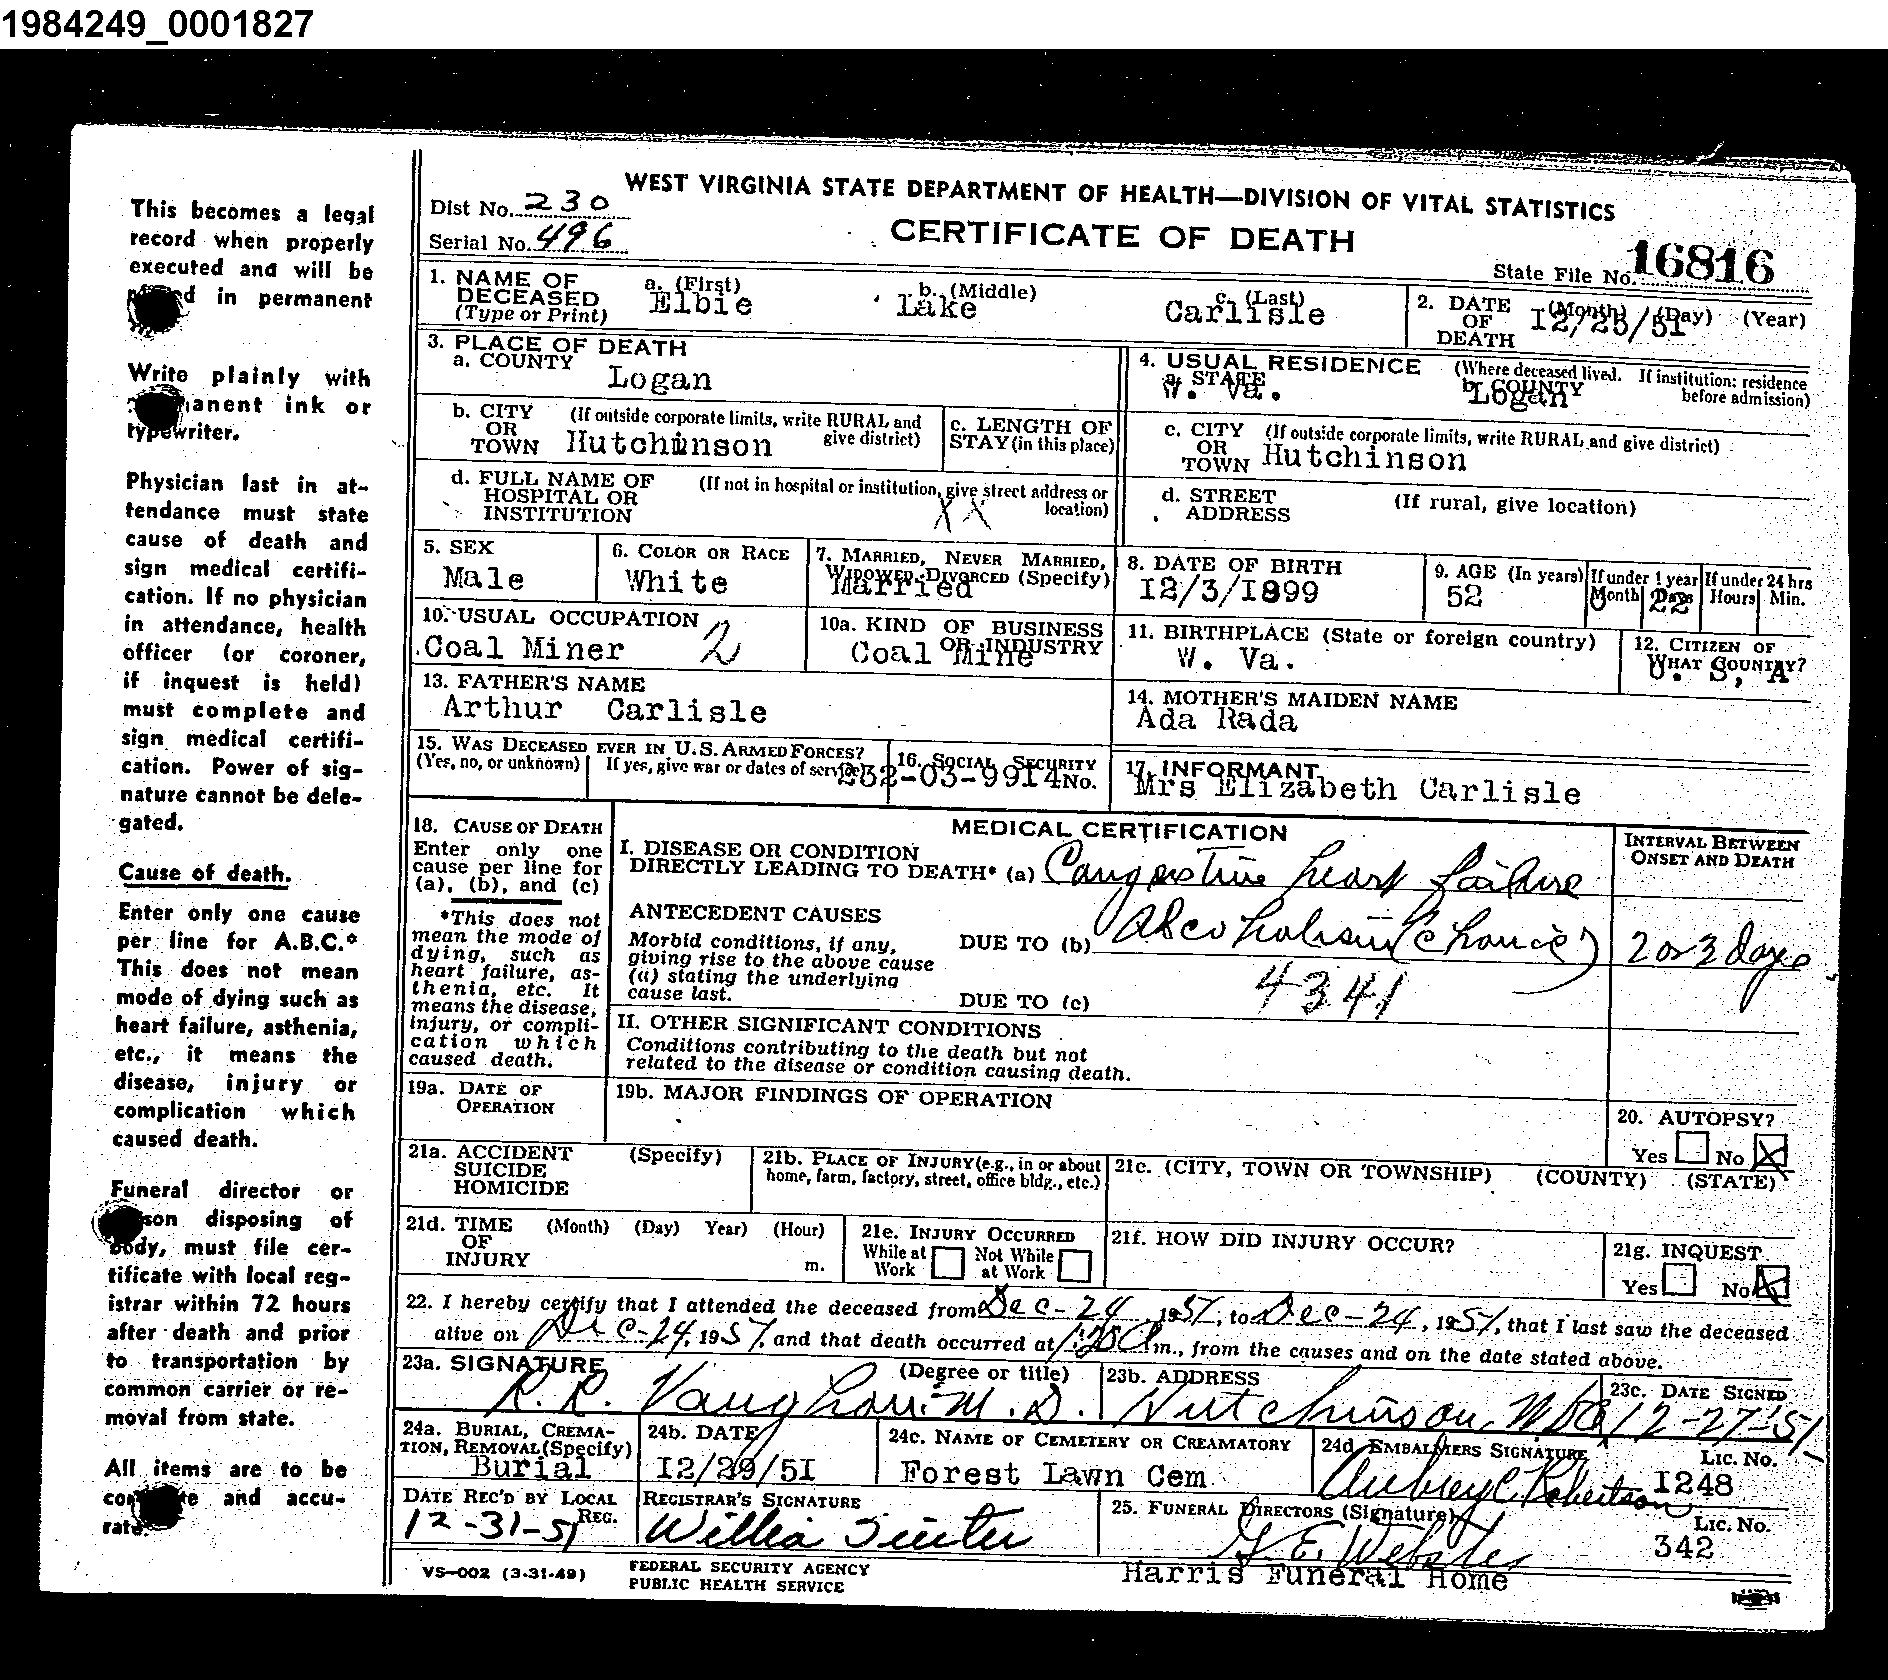 1984249_0001827
WEST VIRGINIA STATE DEPARTMENT OF HEALTH—DIVISION OF VITAL STATISTICS
CERTIFICATE OF DEATH
Dist No. 230
Serial No. 496
State File No. 16816
This becomes a legal
record when properly
executed and will be
in permanent
Write plainly with
ink or
typewriter.
Physician last in at-
tendance must state
cause of death and
sign medical certifi-
cation. If no physician
in attendance, health
officer (or coroner,
if inquest is held)
must complete and
sign medical certifi-
cation. Power of sig-
nature cannot be dele-
gated.
Cause of death.
Enter only one cause
per line for A.B.C.*
This does not mean
mode of dying such as
heart failure, asthenia,
etc., it means the
disease, injury or
complication which
caused death.
Funeral director or
disposing of
body, must file cer-
tificate with local reg-
istrar within 72 hours
after death and prior
to transportation by
common carrier or re-
moval from state.
All items are to be
and accu-
rate.
1. NAME OF DECEASED (Type or Print) a. (First) Elbie b. (Middle) Lake c. (Last) Carlisle
2. DATE OF DEATH (Month) (Day) (Year) 12/25/51
3. PLACE OF DEATH
a. COUNTY Logan
b. CITY OR TOWN (If outside corporate limits, write RURAL and give district) Hutchinson
c. LENGTH OF STAY (in this place)
d. FULL NAME OF HOSPITAL OR INSTITUTION (If not in hospital or institution, give street address or location) XX
4. USUAL RESIDENCE (Where deceased lived. If institution: residence before admission)
a. STATE W. Va. b. COUNTY Logan
c. CITY OR TOWN (If outside corporate limits, write RURAL and give district) Hutchinson
d. STREET ADDRESS (If rural, give location)
5. SEX Male
6. COLOR OR RACE White
7. MARRIED, NEVER MARRIED, WIDOWED, DIVORCED (Specify) Married
8. DATE OF BIRTH 12/3/1899
9. AGE (In years) 52 If under 1 year Month 0 Days 22 If under 24 hrs Hours Min.
10. USUAL OCCUPATION Coal Miner 2
10a. KIND OF BUSINESS OR INDUSTRY Coal Mine
11. BIRTHPLACE (State or foreign country) W. Va.
12. CITIZEN OF WHAT COUNTRY? U. S, A
13. FATHER'S NAME Arthur Carlisle
14. MOTHER'S MAIDEN NAME Ada Rada
15. WAS DECEASED EVER IN U.S. ARMED FORCES? (Yes, no, or unknown) If yes, give war or dates of service
16. SOCIAL SECURITY No. 232-03-9914
17. INFORMANT Mrs Elizabeth Carlisle
18. CAUSE OF DEATH
Enter only one
cause per line for
(a), (b), and (c)
*This does not
mean the mode of
dying, such as
heart failure, as-
thenia, etc. It
means the disease,
injury, or compli-
cation which
caused death.
MEDICAL CERTIFICATION
INTERVAL BETWEEN ONSET AND DEATH
I. DISEASE OR CONDITION
DIRECTLY LEADING TO DEATH* (a) Congestive heart failure
ANTECEDENT CAUSES
Morbid conditions, if any,
giving rise to the above cause
(a) stating the underlying
cause last.
DUE TO (b) Alcoholism (Chronic) 2 or 3 days
DUE TO (c) 4341
II. OTHER SIGNIFICANT CONDITIONS
Conditions contributing to the death but not
related to the disease or condition causing death.
19a. DATE OF OPERATION
19b. MAJOR FINDINGS OF OPERATION
20. AUTOPSY?
Yes No X
21a. ACCIDENT SUICIDE HOMICIDE (Specify)
21b. PLACE OF INJURY (e.g., in or about home, farm, factory, street, office bldg., etc.)
21c. (CITY, TOWN OR TOWNSHIP) (COUNTY) (STATE)
21d. TIME OF INJURY (Month) (Day) Year) (Hour) m.
21e. INJURY OCCURRED While at Work Not While at Work
21f. HOW DID INJURY OCCUR?
21g. INQUEST
Yes No X
22. I hereby certify that I attended the deceased from Dec-24, 1951, to Dec-24, 1951, that I last saw the deceased
alive on Dec-24, 1951, and that death occurred at 1:20 A m., from the causes and on the date stated above.
23a. SIGNATURE (Degree or title) R. R. Vaughan M.D.
23b. ADDRESS Hutchinson, W Va
23c. DATE SIGNED 12-27-51
24a. BURIAL, CREMATION, REMOVAL (Specify) Burial
24b. DATE 12/29/51
24c. NAME OF CEMETERY OR CREAMATORY Forest Lawn Cem
24d EMBALMERS SIGNATURE Aubrey C. Robertson Lic. No. 1248
DATE REC'D BY LOCAL REG. 12-31-51
REGISTRAR'S SIGNATURE
25. FUNERAL DIRECTORS (Signature) G. E. Webster Lic. No. 342
Harris Funeral Home
VS-002 (3-31-49)
FEDERAL SECURITY AGENCY
PUBLIC HEALTH SERVICE